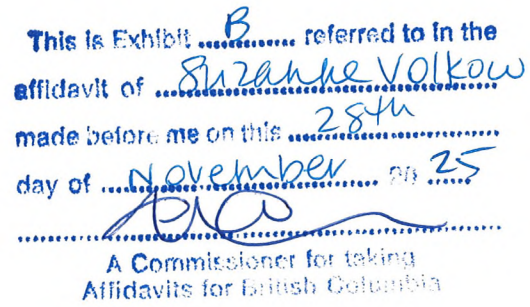 This is Exhibit B referred to in the
affidavit of Suzanne Volkow
made before me on this 28th
day of November 20 25
A Commissioner for taking
Affidavits for British Columbia